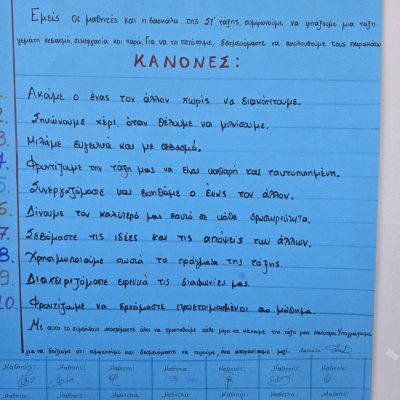 Εμείς οι μαθητές και η δασκάλα της ΣΤ' τάξης, συμφωνούμε να φτιάξουμε μια τάξη
γεμάτη σεβασμό, συνεργασία και χαρά. Για να το πετύχουμε, δεσμευόμαστε να ακολουθούμε τους παρακάτω
ΚΑΝΟΝΕΣ:
Ακούμε ο ένας τον άλλον χωρίς να διακόπτουμε.
2. Σηκώνουμε χέρι, όταν θέλουμε να μιλήσουμε.
3. Μιλάμε ευγενικά και με σεβασμό.
4. Φροντίζουμε την τάξη μας να είναι καθαρή και τακτοποιημένη.
5. Συνεργαζόμαστε και βοηθάμε ο ένας τον άλλον.
6. Δίνουμε τον καλύτερό μας εαυτό σε κάθε δραστηριότητα.
7. Σεβόμαστε τις ιδέες και τις απόψεις των άλλων.
8. Χρησιμοποιούμε σωστά τα πράγματα της τάξης.
9. Διαχειριζόμαστε ειρηνικά τις διαφωνίες μας.
10. Φροντίζουμε να ερχόμαστε προετοιμασμένοι στο μάθημα.
Με αυτό το συμβόλαιο υποσχόμαστε όλοι να προσπαθούμε κάθε μέρα να κάνουμε την τάξη μας καλύτερη. Υπογράφουμε
για να δείξουμε ότι συμφωνούμε και δεσμευόμαστε να τηρούμε, όσα αποφασίσαμε μαζί. Δασκάλα
Μαθητής: Μαθητής: Μαθητής: Μαθητής: Μαθητής: Μαθητής: Μαθητής: